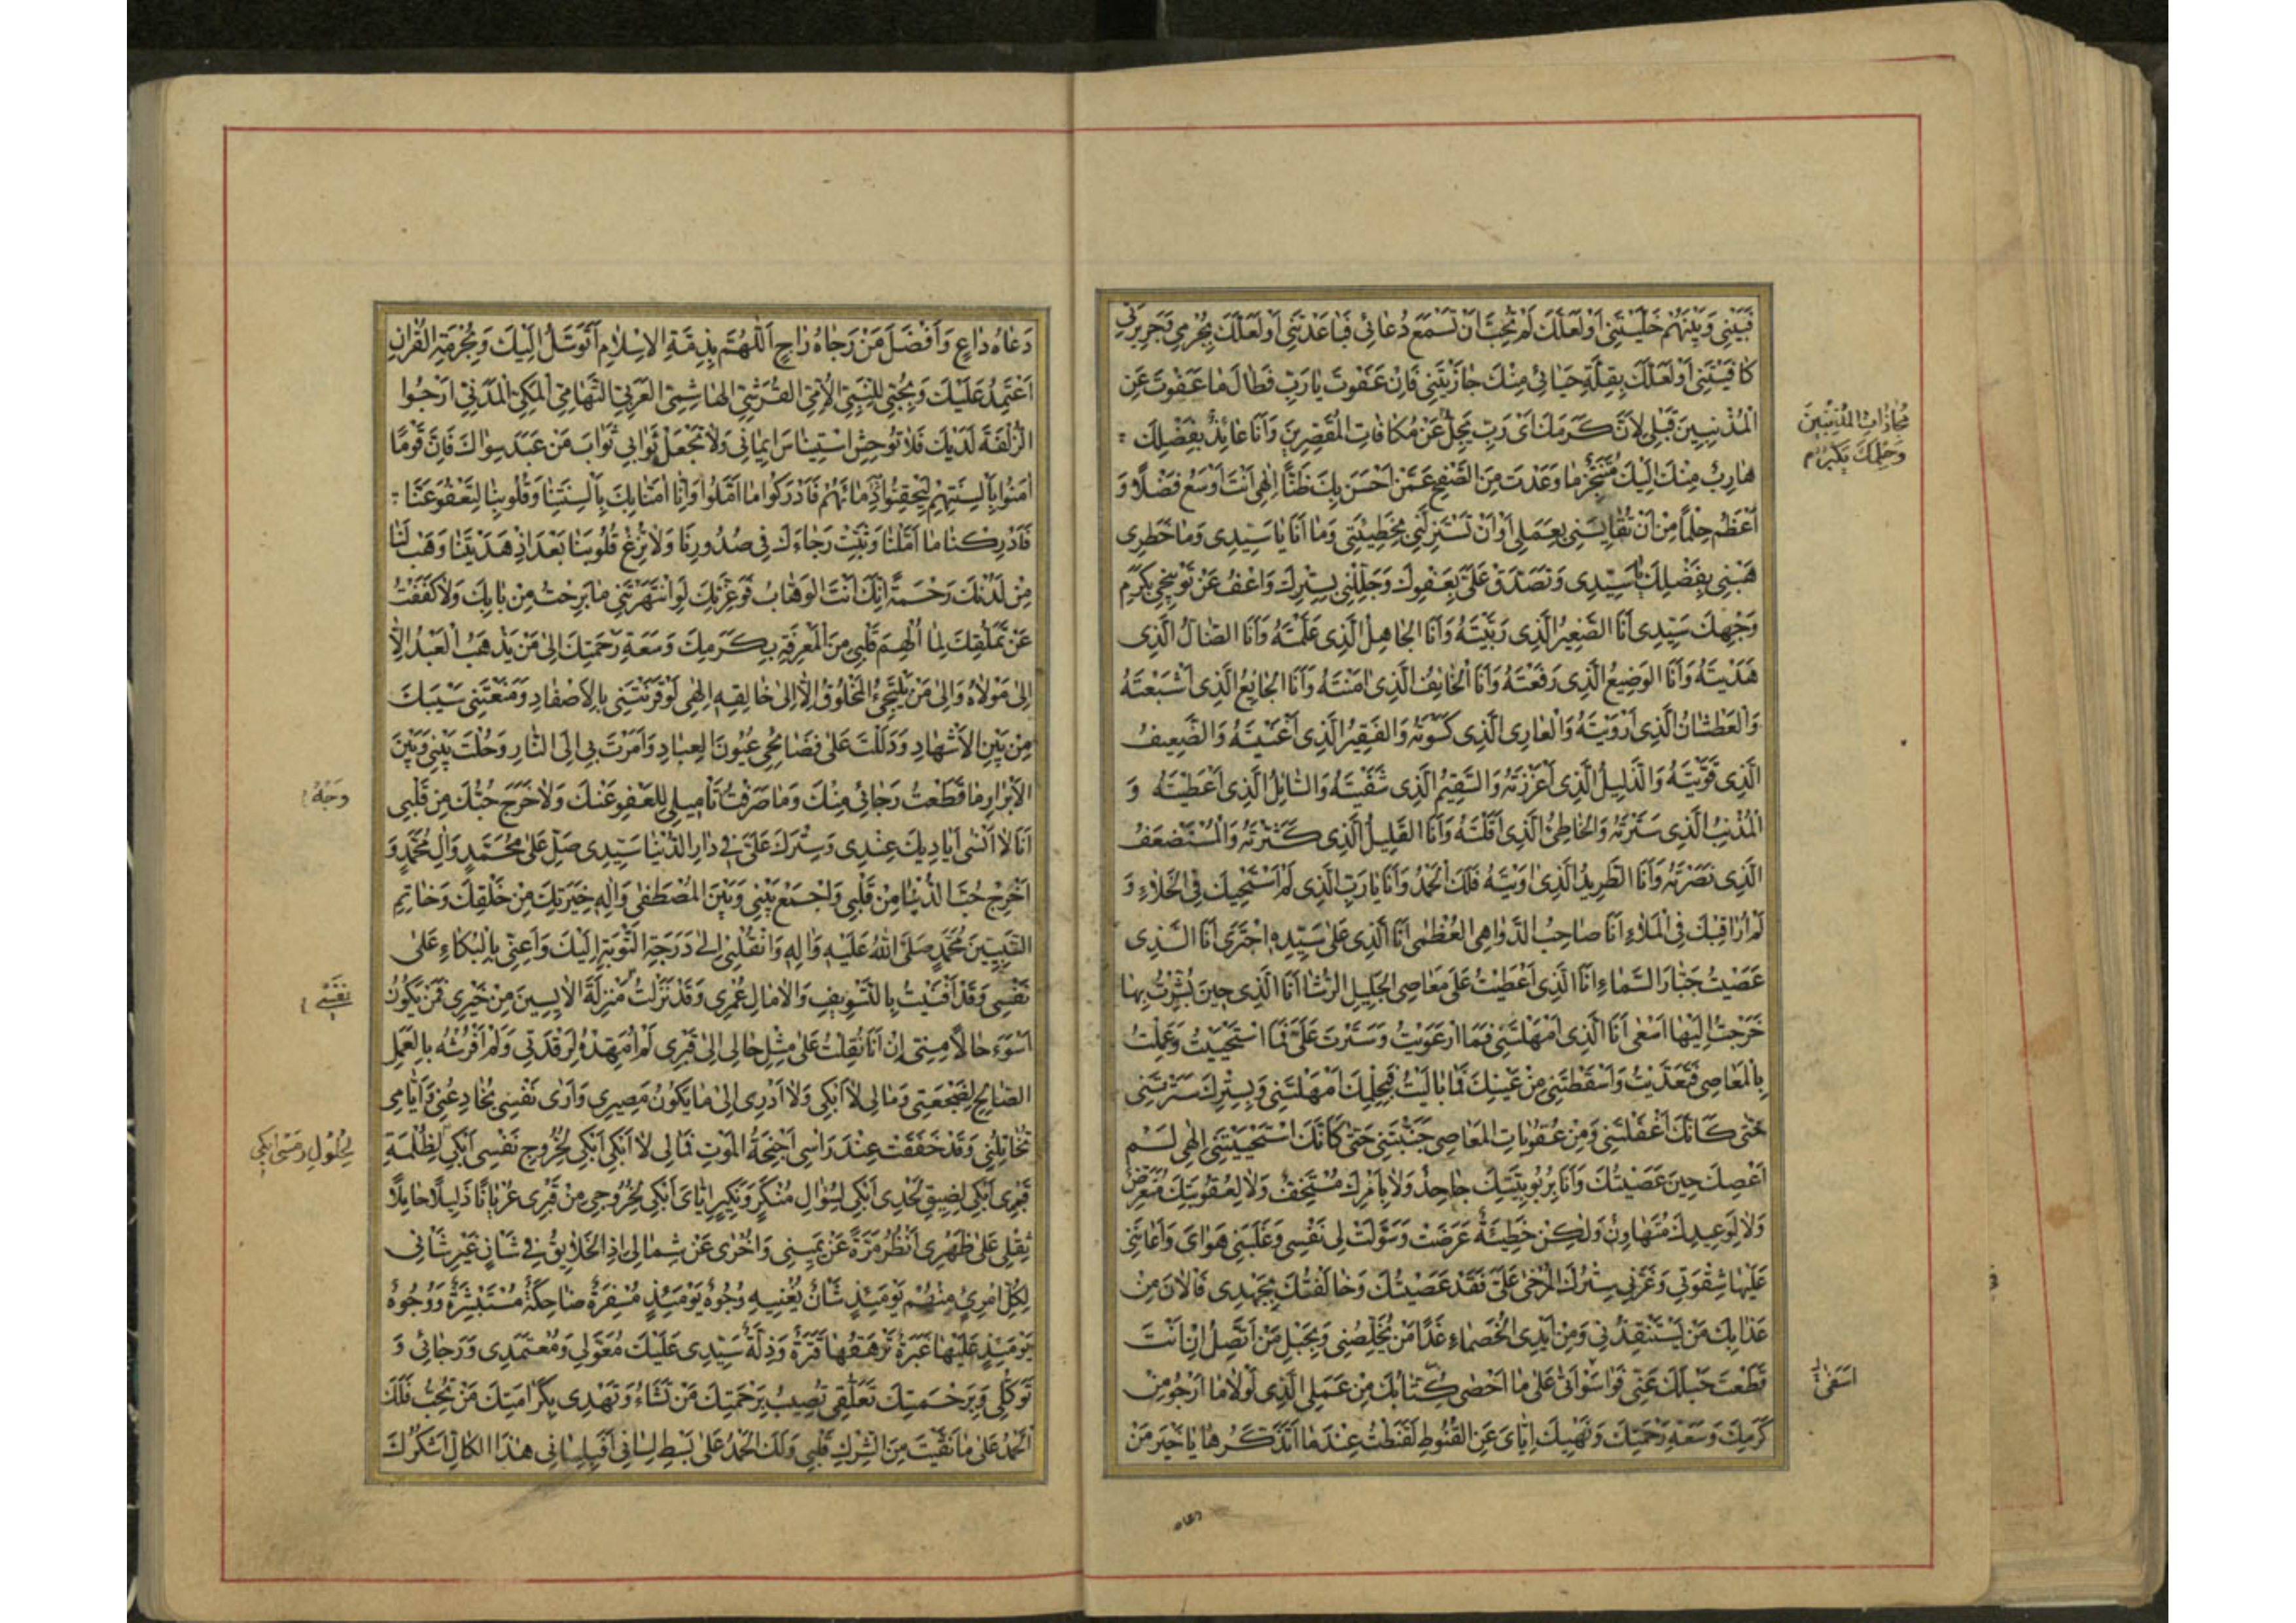 فَبَيْنِي وَبَيْنَهُمْ خَلَّيْتَنِي اَوْ لَعَلَّكَ لَمْ تُحِبَّ اَنْ تَسْمَعَ دُعَائِي فَبَاعَدْتَنِي اَوْ لَعَلَّكَ بِجُرْمِي وَجَرِيرَتِي
كَافَيْتَنِي اَوْ لَعَلَّكَ بِقِلَّةِ حَيَائِي مِنْكَ جَازَيْتَنِي فَاِنْ عَفَوْتَ يَا رَبِّ فَطَالَ مَا عَفَوْتَ عَنِ
الْمُذْنِبِينَ قَبْلِي لِاَنَّ كَرَمَكَ اَيْ رَبِّ يَجِلُّ عَنْ مُكَافَاتِ الْمُقَصِّرِينَ وَاَنَا عَائِذٌ بِفَضْلِكَ
هَارِبٌ مِنْكَ اِلَيْكَ مُتَنَجِّزٌ مَا وَعَدْتَ مِنَ الصَّفْحِ عَمَّنْ اَحْسَنَ بِكَ ظَنًّا اِلٰهِي اَنْتَ اَوْسَعُ فَضْلًا وَ
اَعْظَمُ حِلْمًا مِنْ اَنْ تُقَايِسَنِي بِعَمَلِي اَوْ اَنْ تَسْتَزِلَّنِي بِخَطِيئَتِي وَمَا اَنَا يَا سَيِّدِي وَمَا خَطَرِي
هَبْنِي بِفَضْلِكَ يَا سَيِّدِي وَتَصَدَّقْ عَلَيَّ بِعَفْوِكَ وَجَلِّلْنِي بِسِتْرِكَ وَاعْفُ عَنْ تَوْبِيخِي بِكَرَمِ
وَجْهِكَ سَيِّدِي اَنَا الصَّغِيرُ الَّذِي رَبَّيْتَهُ وَاَنَا الْجَاهِلُ الَّذِي عَلَّمْتَهُ وَاَنَا الضَّالُّ الَّذِي
هَدَيْتَهُ وَاَنَا الْوَضِيعُ الَّذِي رَفَعْتَهُ وَاَنَا الْخَائِفُ الَّذِي اٰمَنْتَهُ وَاَنَا الْجَائِعُ الَّذِي اَشْبَعْتَهُ
وَالْعَطْشَانُ الَّذِي اَرْوَيْتَهُ وَالْعَارِي الَّذِي كَسَوْتَهُ وَالْفَقِيرُ الَّذِي اَغْنَيْتَهُ وَالضَّعِيفُ
الَّذِي قَوَّيْتَهُ وَالذَّلِيلُ الَّذِي اَعْزَزْتَهُ وَالسَّقِيمُ الَّذِي شَفَيْتَهُ وَالسَّائِلُ الَّذِي اَعْطَيْتَهُ وَ
الْمُذْنِبُ الَّذِي سَتَرْتَهُ وَالْخَاطِئُ الَّذِي اَقَلْتَهُ وَاَنَا الْقَلِيلُ الَّذِي كَثَّرْتَهُ وَالْمُسْتَضْعَفُ
الَّذِي نَصَرْتَهُ وَاَنَا الطَّرِيدُ الَّذِي اٰوَيْتَهُ فَلَكَ الْحَمْدُ وَاَنَا يَا رَبِّ الَّذِي لَمْ اَسْتَحْيِكَ فِي الْخَلَاءِ وَ
لَمْ اُرَاقِبْكَ فِي الْمَلَاءِ اَنَا صَاحِبُ الدَّوَاهِي الْعُظْمٰى اَنَا الَّذِي عَلٰى سَيِّدِهِ اجْتَرٰى اَنَا الَّذِي
عَصَيْتُ جَبَّارَ السَّمَاءِ اَنَا الَّذِي اَعْطَيْتُ عَلٰى مَعَاصِي الْجَلِيلِ الرُّشَا اَنَا الَّذِي حِينَ بُشِّرْتُ بِهَا
خَرَجْتُ اِلَيْهَا اَسْعٰى اَنَا الَّذِي اَمْهَلْتَنِي فَمَا ارْعَوَيْتُ وَسَتَرْتَ عَلَيَّ فَمَا اسْتَحْيَيْتُ وَعَمِلْتُ
بِالْمَعَاصِي فَتَعَدَّيْتُ وَاَسْقَطْتَنِي مِنْ عَيْنِكَ فَمَا بَالَيْتُ فَبِحِلْمِكَ اَمْهَلْتَنِي وَبِسِتْرِكَ سَتَرْتَنِي
حَتّٰى كَاَنَّكَ اَغْفَلْتَنِي وَمِنْ عُقُوبَاتِ الْمَعَاصِي جَنَّبْتَنِي حَتّٰى كَاَنَّكَ اسْتَحْيَيْتَنِي اِلٰهِي لَمْ
اَعْصِكَ حِينَ عَصَيْتُكَ وَاَنَا بِرُبُوبِيَّتِكَ جَاحِدٌ وَلَا بِاَمْرِكَ مُسْتَخِفٌّ وَلَا لِعُقُوبَتِكَ مُتَعَرِّضٌ
وَلَا لِوَعِيدِكَ مُتَهَاوِنٌ وَلٰكِنْ خَطِيئَةٌ عَرَضَتْ وَسَوَّلَتْ لِي نَفْسِي وَغَلَبَنِي هَوَايَ وَاَعَانَنِي
عَلَيْهَا شِقْوَتِي وَغَرَّنِي سِتْرُكَ الْمُرْخٰى عَلَيَّ فَقَدْ عَصَيْتُكَ وَخَالَفْتُكَ بِجَهْدِي فَالْاٰنَ مِنْ
عَذَابِكَ مَنْ يَسْتَنْقِذُنِي وَمِنْ اَيْدِي الْخُصَمَاءِ غَدًا مَنْ يُخَلِّصُنِي وَبِحَبْلِ مَنْ اَتَّصِلُ اِنْ اَنْتَ
قَطَعْتَ حَبْلَكَ عَنِّي فَوَاسَوْاَتَا عَلٰى مَا اَحْصٰى كِتَابُكَ مِنْ عَمَلِيَ الَّذِي لَوْلَا مَا اَرْجُو مِنْ
كَرَمِكَ وَسَعَةِ رَحْمَتِكَ وَنَهْيِكَ اِيَّايَ عَنِ الْقُنُوطِ لَقَنَطْتُ عِنْدَمَا اَتَذَكَّرُهَا يَا خَيْرَ مَنْ
مُجَازَاتِ الْمُذْنِبِينَ
وَحِلْمَكَ يَكْبُرُ
دعاه
دَعَاهُ دَاعٍ وَاَفْضَلَ مَنْ رَجَاهُ رَاجٍ اَللّٰهُمَّ بِذِمَّةِ الْاِسْلَامِ اَتَوَسَّلُ اِلَيْكَ وَبِحُرْمَةِ الْقُرْاٰنِ
اَعْتَمِدُ عَلَيْكَ وَبِحُبِّي لِلنَّبِيِّ الْاُمِّيِّ الْقُرَشِيِّ الْهَاشِمِيِّ الْعَرَبِيِّ التِّهَامِيِّ الْمَكِّيِّ الْمَدَنِيِّ اَرْجُوا
الزُّلْفَةَ لَدَيْكَ فَلَا تُوحِشْ اسْتِينَاسَ اِيمَانِي وَلَا تَجْعَلْ ثَوَابِي ثَوَابَ مَنْ عَبَدَ سِوَاكَ فَاِنَّ قَوْمًا
اٰمَنُوا بِاَلْسِنَتِهِمْ لِيَحْقِنُوا دِمَائَهُمْ فَاَدْرَكُوا مَا اَمَّلُوا وَاِنَّا اٰمَنَّا بِكَ بِاَلْسِنَتِنَا وَقُلُوبِنَا لِتَعْفُوَ عَنَّا
فَاَدْرِكْنَا مَا اَمَّلْنَا وَثَبِّتْ رَجَاءَكَ فِي صُدُورِنَا وَلَا تُزِغْ قُلُوبَنَا بَعْدَ اِذْ هَدَيْتَنَا وَهَبْ لَنَا
مِنْ لَدُنْكَ رَحْمَةً اِنَّكَ اَنْتَ الْوَهَّابُ فَوَعِزَّتِكَ لَوِ انْتَهَرْتَنِي مَا بَرِحْتُ مِنْ بَابِكَ وَلَا كَفَفْتُ
عَنْ تَمَلُّقِكَ لِمَا اُلْهِمَ قَلْبِي مِنَ الْمَعْرِفَةِ بِكَرَمِكَ وَسَعَةِ رَحْمَتِكَ اِلٰى مَنْ يَذْهَبُ الْعَبْدُ اِلَّا
اِلٰى مَوْلَاهُ وَاِلٰى مَنْ يَلْتَجِئُ الْمَخْلُوقُ اِلَّا اِلٰى خَالِقِهِ اِلٰهِي لَوْ قَرَنْتَنِي بِالْاَصْفَادِ وَمَنَعْتَنِي سَيْبَكَ
مِنْ بَيْنِ الْاَشْهَادِ وَدَلَلْتَ عَلٰى فَضَايِحِي عُيُونَ الْعِبَادِ وَاَمَرْتَ بِي اِلَى النَّارِ وَحُلْتَ بَيْنِي وَبَيْنَ
الْاَبْرَارِ مَا قَطَعْتُ رَجَائِي مِنْكَ وَمَا صَرَفْتُ تَاْمِيلِي لِلْعَفْوِ عَنْكَ وَلَا خَرَجَ حُبُّكَ مِنْ قَلْبِي
اَنَا لَا اَنْسٰى اَيَادِيَكَ عِنْدِي وَسِتْرَكَ عَلَيَّ فِي دَارِ الدُّنْيَا سَيِّدِي صَلِّ عَلٰى مُحَمَّدٍ وَاٰلِ مُحَمَّدٍ وَ
اَخْرِجْ حُبَّ الدُّنْيَا مِنْ قَلْبِي وَاجْمَعْ بَيْنِي وَبَيْنَ الْمُصْطَفٰى وَاٰلِهِ خِيَرَتِكَ مِنْ خَلْقِكَ وَخَاتِمِ
النَّبِيِّينَ مُحَمَّدٍ صَلَّى اللّٰهُ عَلَيْهِ وَاٰلِهِ وَانْقُلْنِي اِلٰى دَرَجَةِ التَّوْبَةِ اِلَيْكَ وَاَعِنِّي بِالْبُكَاءِ عَلٰى
نَفْسِي وَقَدْ اَفْنَيْتُ بِالتَّسْوِيفِ وَالْاٰمَالِ عُمْرِي وَقَدْ نَزَلْتُ مَنْزِلَةَ الْاٰيِسِينَ مِنْ خَيْرِي فَمَنْ يَكُونُ
اَسْوَءَ حَالًا مِنِّي اِنْ اَنَا نُقِلْتُ عَلٰى مِثْلِ حَالِي اِلٰى قَبْرِي لَمْ اُمَهِّدْهُ لِرَقْدَتِي وَلَمْ اَفْرُشْهُ بِالْعَمَلِ
الصَّالِحِ لِضَجْعَتِي وَمَا لِي لَا اَبْكِي وَلَا اَدْرِي اِلٰى مَا يَكُونُ مَصِيرِي وَاَرٰى نَفْسِي تُخَادِعُنِي وَاَيَّامِي
تُخَاتِلُنِي وَقَدْ خَفَقَتْ عِنْدَ رَاْسِي اَجْنِحَةُ الْمَوْتِ فَمَا لِي لَا اَبْكِي اَبْكِي لِخُرُوجِ نَفْسِي اَبْكِي لِظُلْمَةِ
قَبْرِي اَبْكِي لِضِيقِ لَحْدِي اَبْكِي لِسُؤَالِ مُنْكَرٍ وَنَكِيرٍ اِيَّايَ اَبْكِي لِخُرُوجِي مِنْ قَبْرِي عُرْيَانًا ذَلِيلًا حَامِلًا
ثِقْلِي عَلٰى ظَهْرِي اَنْظُرُ مَرَّةً عَنْ يَمِينِي وَاُخْرٰى عَنْ شِمَالِي اِذِ الْخَلَايِقُ فِي شَاْنٍ غَيْرِ شَاْنِي
لِكُلِّ امْرِئٍ مِنْهُمْ يَوْمَئِذٍ شَاْنٌ يُغْنِيهِ وُجُوهٌ يَوْمَئِذٍ مُسْفِرَةٌ ضَاحِكَةٌ مُسْتَبْشِرَةٌ وَوُجُوهٌ
يَوْمَئِذٍ عَلَيْهَا غَبَرَةٌ تَرْهَقُهَا قَتَرَةٌ وَذِلَّةٌ سَيِّدِي عَلَيْكَ مُعَوَّلِي وَمُعْتَمَدِي وَرَجَائِي وَ
تَوَكُّلِي وَبِرَحْمَتِكَ تَعَلُّقِي تُصِيبُ بِرَحْمَتِكَ مَنْ تَشَاءُ وَتَهْدِي بِكَرَامَتِكَ مَنْ تُحِبُّ فَلَكَ
الْحَمْدُ عَلٰى مَا نَقَّيْتَ مِنَ الشِّرْكِ قَلْبِي وَلَكَ الْحَمْدُ عَلٰى بَسْطِ لِسَانِي اَفَبِلِسَانِي هٰذَا الْكَالِّ اَشْكُرُكَ
وَجْهُ
نَفْسِي